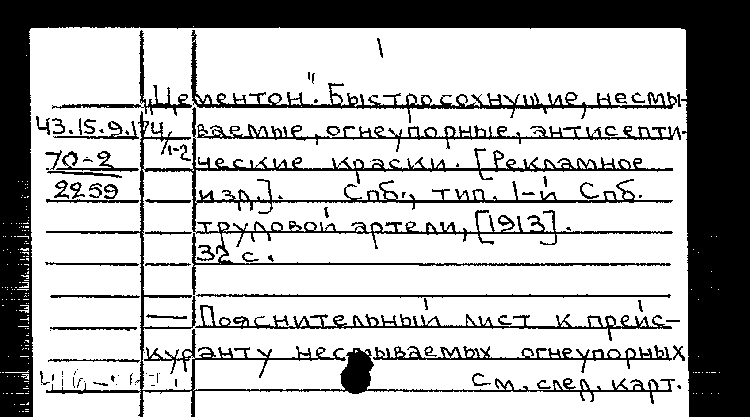 1
„Цементон". Быстросохнущие, несмы-
43.15.9.174/1-2 ваемые, огнеупорные, антисепти-
70-2 ческие краски. [Рекламное
2259 изд.]. Спб., тип. 1-й Спб.
трудовой артели, [1913].
32 с.
— Пояснительный лист к прейс-
куранту несмываемых огнеупорных
См. след. карт.